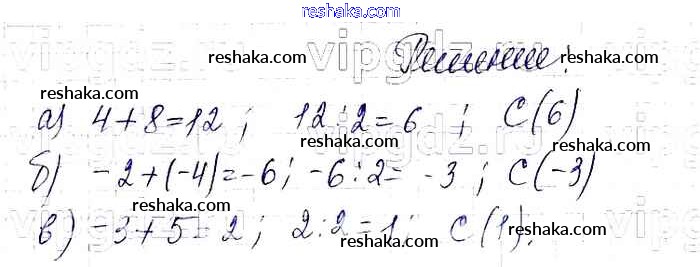 reshaka.com
vipgdz.ru
reshaka.com reshaka.com Решение:
а) 4+8=12; 12:2=6; С(6)
reshaka.com reshaka.com reshaka.com
б) -2+(-4)=-6; -6:2=-3; С(-3)
reshaka.com reshaka.com
в) -3+5=2; 2:2=1; С(1).
reshaka.com reshaka.com
reshaka.com